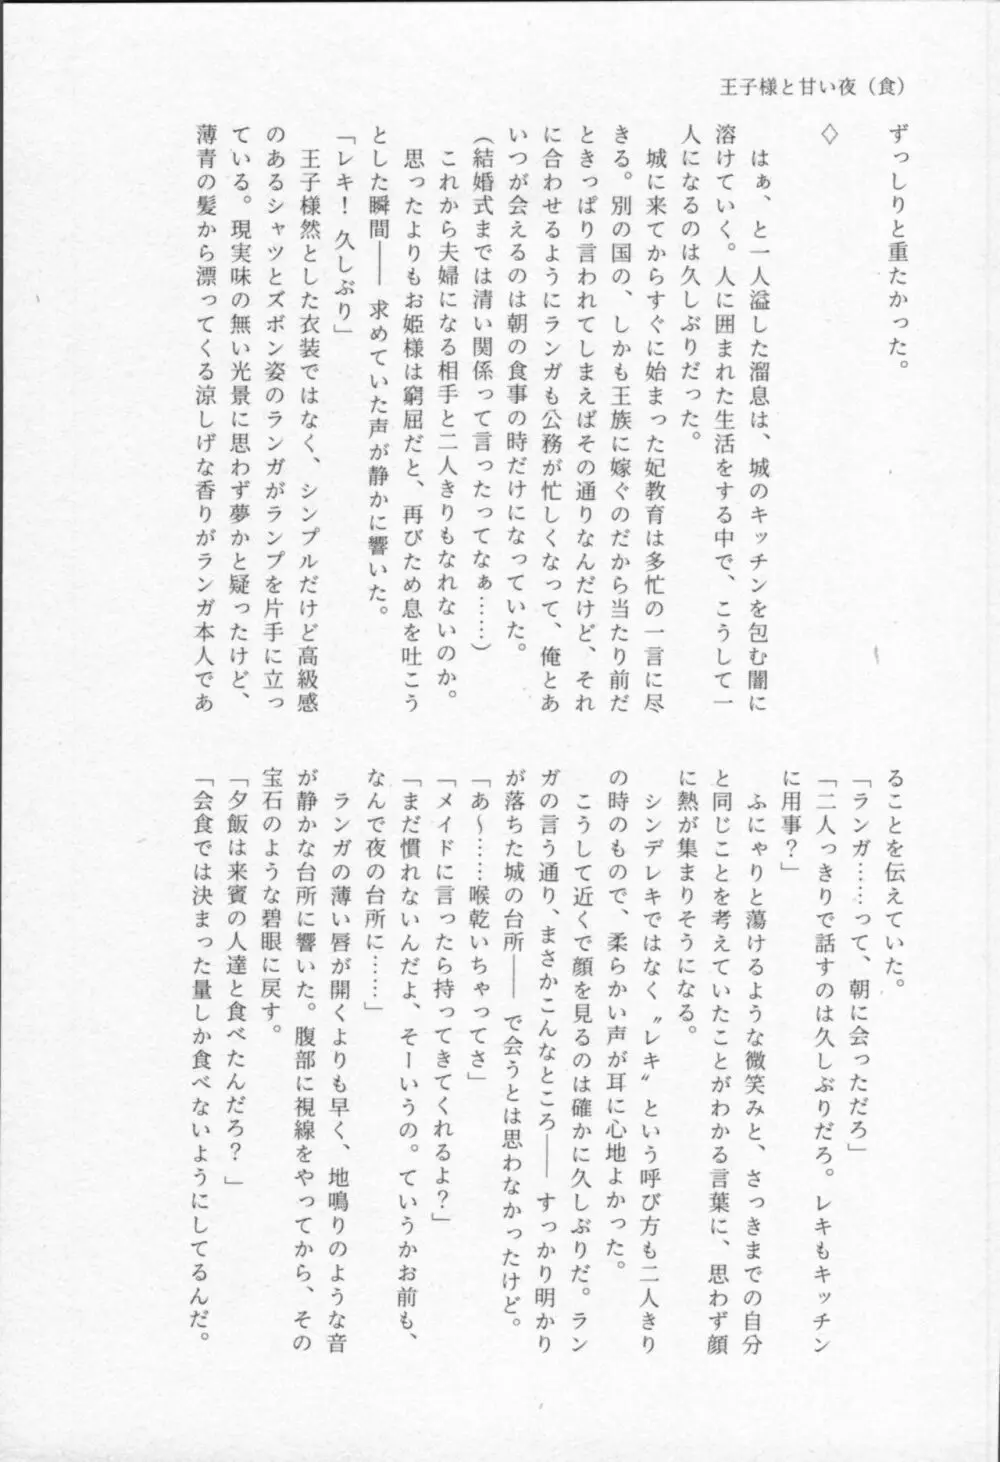 王子様と甘い夜（食）
ずっしりと重たかった。
◇
　はぁ、と一人溢した溜息は、城のキッチンを包む闇に
溶けていく。人に囲まれた生活をする中で、こうして一
人になるのは久しぶりだった。
　城に来てからすぐに始まった妃教育は多忙の一言に尽
きる。別の国の、しかも王族に嫁ぐのだから当たり前だ
ときっぱり言われてしまえばその通りなんだけど、それ
に合わせるようにランガも公務が忙しくなって、俺とあ
いつが会えるのは朝の食事の時だけになっていた。
（結婚式までは清い関係って言ったってなぁ……）
　これから夫婦になる相手と二人きりもなれないのか。
　思ったよりもお姫様は窮屈だと、再びため息を吐こう
とした瞬間―― 求めていた声が静かに響いた。
「レキ！ 久しぶり」
　王子様然とした衣装ではなく、シンプルだけど高級感
のあるシャツとズボン姿のランガがランプを片手に立っ
ている。現実味の無い光景に思わず夢かと疑ったけど、
薄青の髪から漂ってくる涼しげな香りがランガ本人であ
ることを伝えていた。
「ランガ……って、朝に会っただろ」
「二人っきりで話すのは久しぶりだろ。レキもキッチン
に用事？」
　ふにゃりと蕩けるような微笑みと、さっきまでの自分
と同じことを考えていたことがわかる言葉に、思わず顔
に熱が集まりそうになる。
　シンデレキではなく〝レキ〟という呼び方も二人きり
の時のもので、柔らかい声が耳に心地よかった。
　こうして近くで顔を見るのは確かに久しぶりだ。ラン
ガの言う通り、まさかこんなところ―― すっかり明かり
が落ちた城の台所―― で会うとは思わなかったけど。
「あ～……喉乾いちゃってさ」
「メイドに言ったら持ってきてくれるよ？」
「まだ慣れないんだよ、そーいうの。ていうかお前も、
なんで夜の台所に……」
　ランガの薄い唇が開くよりも早く、地鳴りのような音
が静かな台所に響いた。腹部に視線をやってから、その
宝石のような碧眼に戻す。
「夕飯は来賓の人達と食べたんだろ？」
「会食では決まった量しか食べないようにしてるんだ。